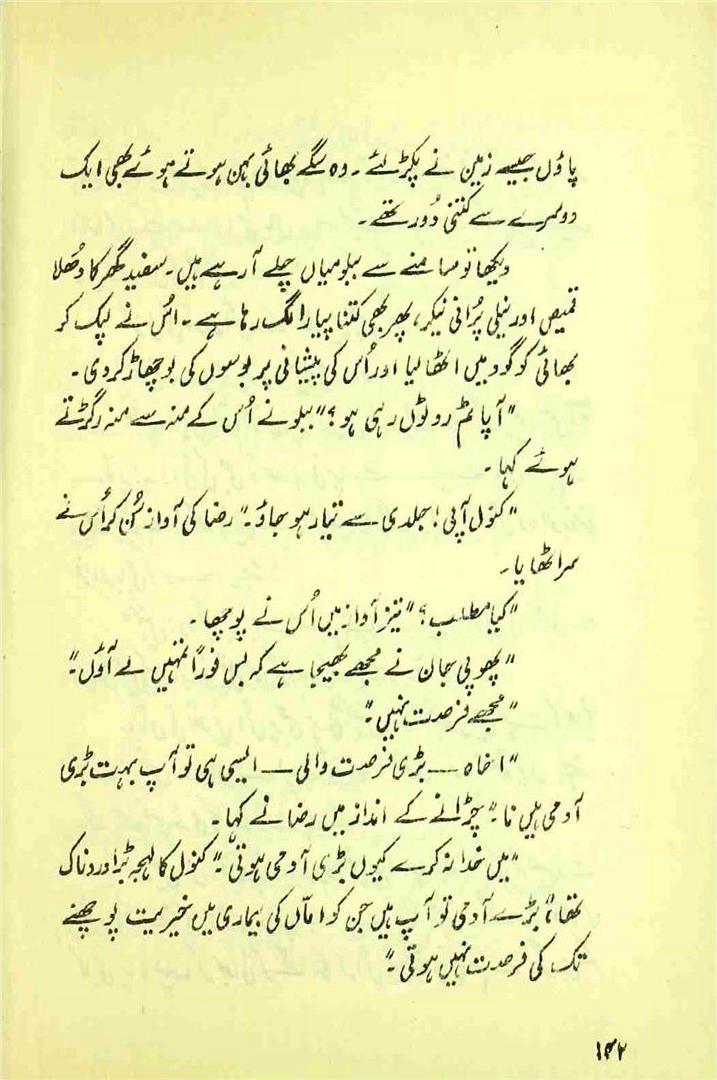 پاؤں جیسے زمین نے پکڑ لئے ۔ وہ سگے بھائی بہن ہوتے ہوئے بھی ایک
دوسرے سے کتنی دُور تھے ۔
دیکھا تو سامنے سے ببلو میاں چلے آرہے ہیں ۔ سفید گھر کا دُھلا
قمیص اور نیلی پُرانی نیکر، پھر بھی کتنا پیارا لگ رہا ہے ۔ اُس نے لپک کر
بھائی کو گود میں اٹھا لیا اور اُس کی پیشانی پر بوسوں کی بوچھاڑ کردی ۔
”آپا تم رو لوں رہی ہو ؟“ ببلو نے اُس کے منہ سے منہ رگڑتے
ہوئے کہا ۔
”کنول آپی ! جلدی سے تیار ہو جاؤ ۔“ رضا کی آواز سُن کر اُس نے
سر اٹھایا ۔
”کیا مطلب ؟“ تیز آواز میں اُس نے پوچھا ۔
”پھوپی جان نے مجھے بھیجا ہے کہ بس فوراً تمہیں لے آؤں ۔“
”مجھے فرصت نہیں ۔“
”اخاہ — بڑی فرصت والی — ایسی ہی تو آپ بہت بڑی
آدمی ہیں نا ۔“ چڑانے کے انداز میں رضا نے کہا ۔
”میں خدا نہ کرے کیوں بڑی آدمی ہوتی ۔“ کنول کا لہجہ بڑا دردناک
تھا ”بڑے آدمی تو آپ ہیں جن کو امّاں کی بیماری میں خیریت پوچھنے
تک کی فرصت نہیں ہوتی ۔“
۱۴۲